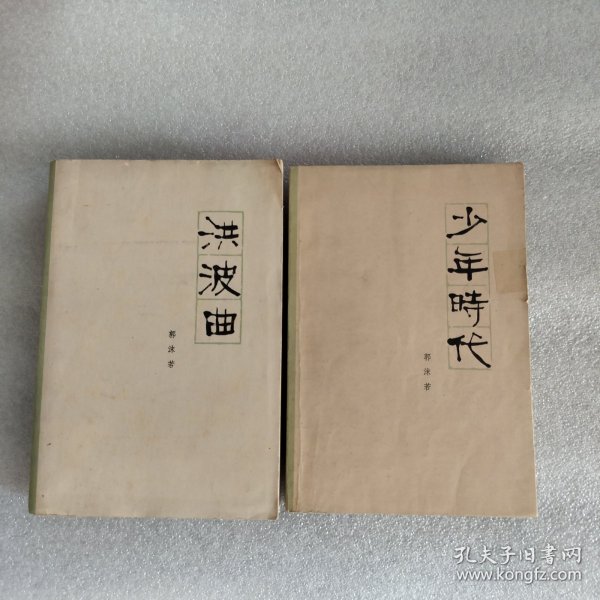 洪波曲
郭沫若
少年時代
郭沫若
孔夫子旧书网
www.kongfz.com